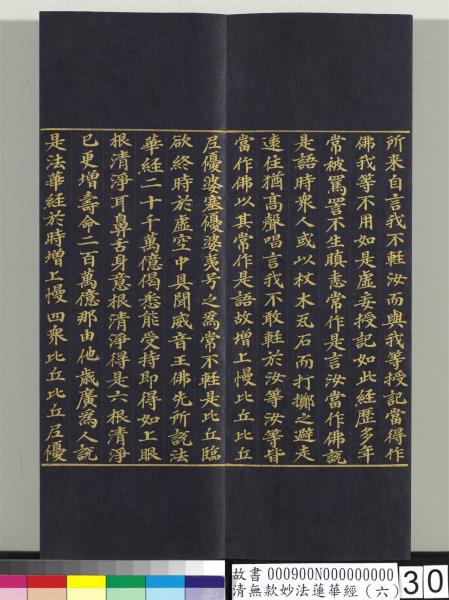 所来自言我不輕汝而與我等授記當得作
佛我等不用如是虛妄授記如此經歷多年
常被罵詈不生瞋恚常作是言汝當作佛說
是語時衆人或以杖木瓦石而打擲之避走
遠住猶髙聲唱言我不敢輕於汝等汝等皆
當作佛以其常作是語故增上慢比丘比丘
尼優婆塞優婆夷号之為常不輕是比丘臨
欲終時於虛空中具聞威音王佛先所說法
華經二十千萬億偈悉能受持即得如上眼
根清淨耳鼻舌身意根清淨得是六根清淨
已更增壽命二百萬億那由他歳廣為人說
是法華經於時增上慢四衆比丘比丘尼優
故書 000900N000000000
清無款妙法蓮華經（六）
30